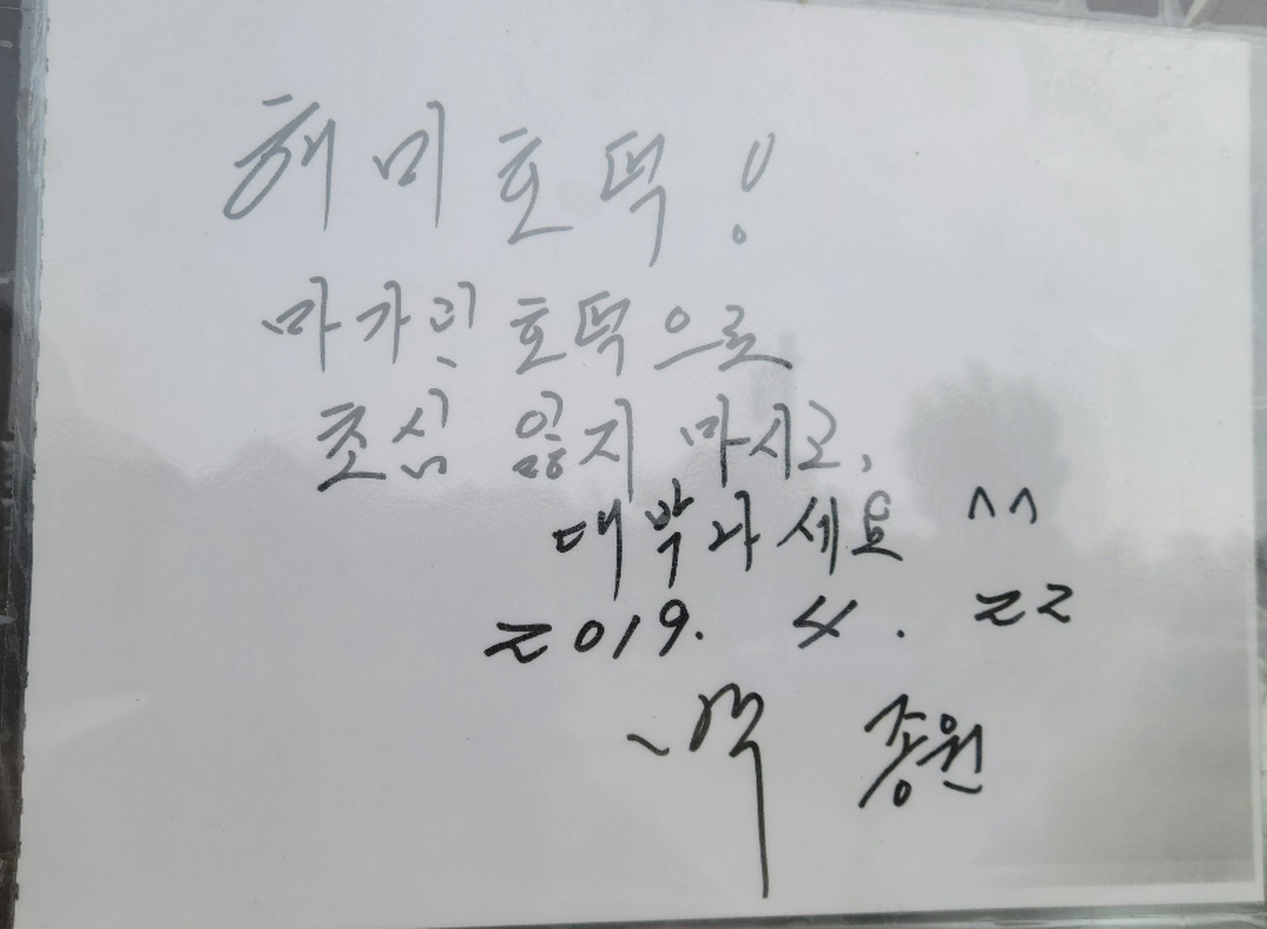 해미호떡!
마가린 호떡으로
초심 잃지 마시고,
대박나세요 ^^
2019. 4. 22
백 종원